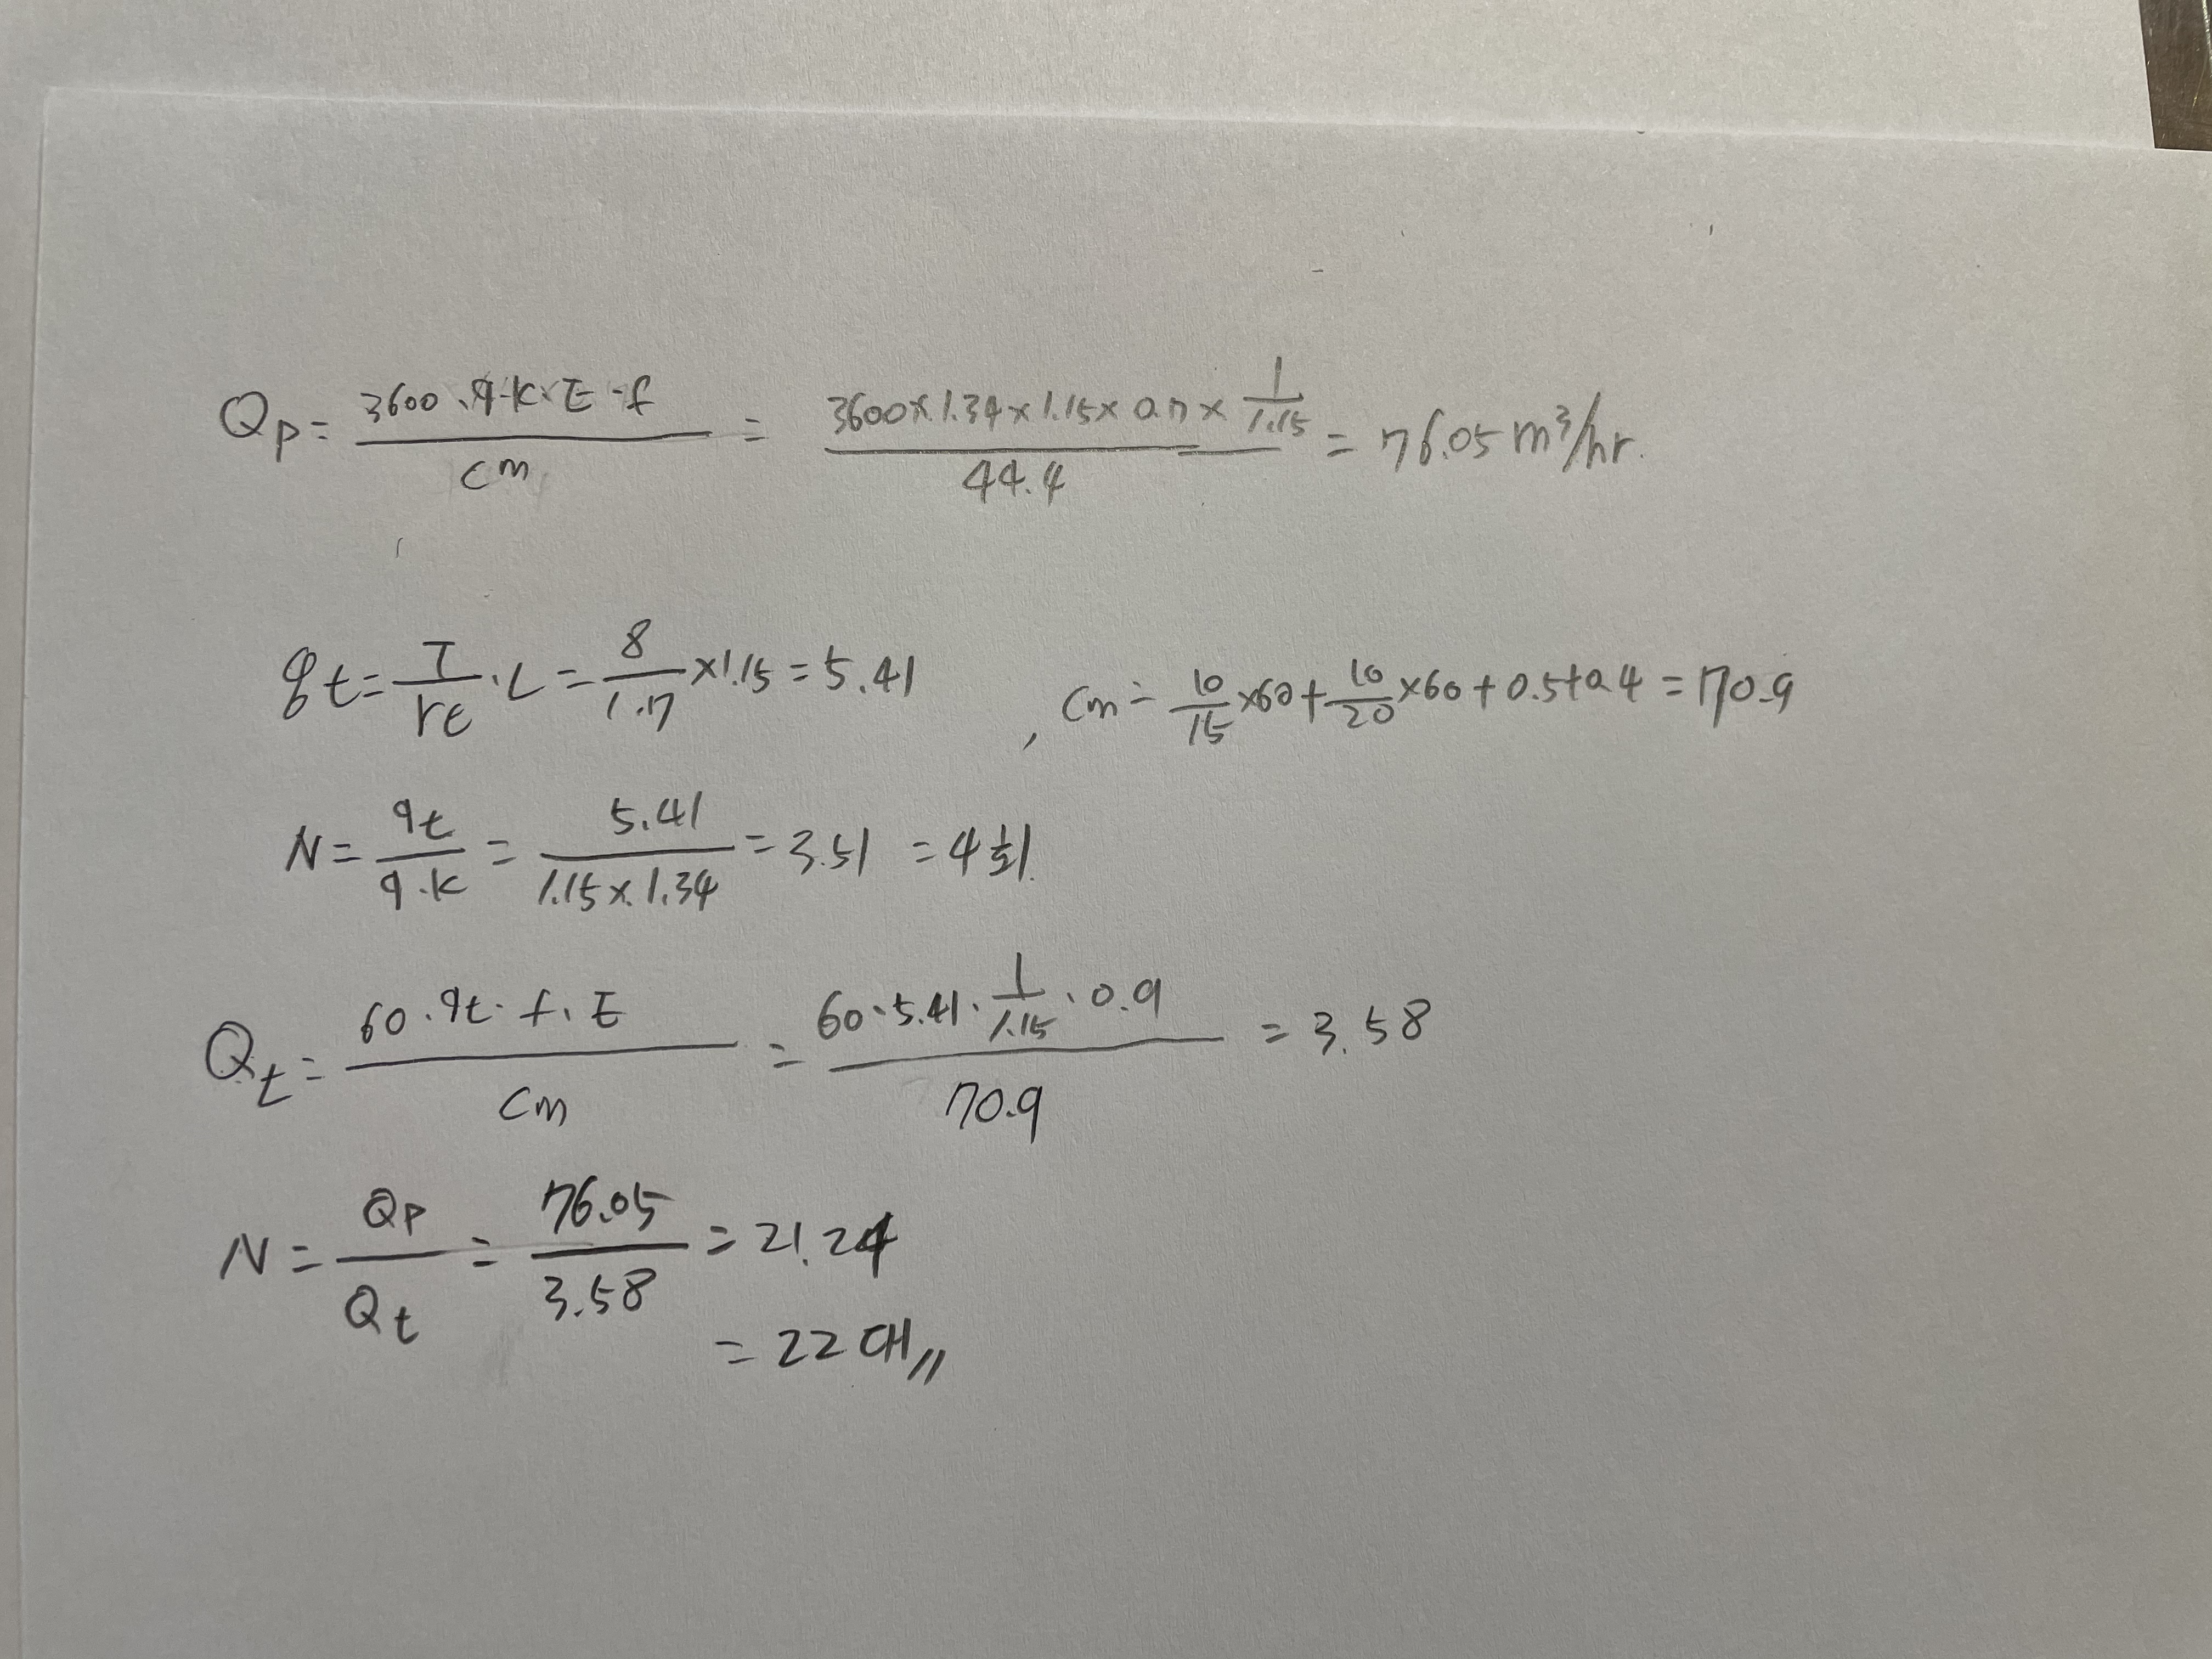 Qp = 3600·q·k·E·f / cm = 3600×1.34×1.15×0.7×1/1.15 / 44.4 = 76.05 m³/hr.
qt = T/rt · L = 8/1.7 ×1.15 = 5.41 , cm = 10/15 ×60 + 10/20 ×60 + 0.5+0.4 = 70.9
N = qt / q·k = 5.41 / 1.15×1.34 = 3.51 = 4회.
Qt = 60·qt·f·E / cm = 60·5.41·1/1.15·0.9 / 70.9 = 3.58
N = Qp / Qt = 76.05 / 3.58 = 21.24
= 22대〃